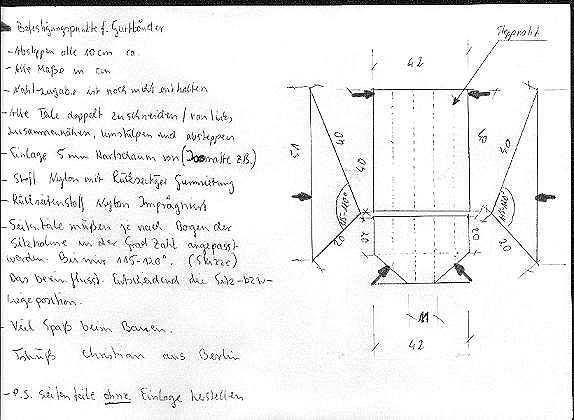 Befestigungspunkte f. Gurtbänder
- Absteppen alle 10 cm ca.
- Alle Maße in cm
- Naht-zugabe ist noch nicht enthalten
- Alle Teile doppelt zuschneiden / von links
zusammennähen, umstülpen und absteppen
- Einlage 5 mm Hartschaum von (Isomatte z.B.)
- Stoff Nylon mit Rückseitiger Gummierung
- Rückseitenstoff Nylon Imprägniert
- Seitenteile müßen je nach Bogen der
Sitzholme in der Grad Zahl angepasst
werden. Bei mir 115-120°. (Skizze)
Das beeinflusst Entscheidend die Sitz-bzw-
Liegeposition.
- Viel Spaß beim Bauen.
Tschüß Christian aus Berlin
- P.S. Seitenteile ohne Einlage herstellen
Steppnaht
42
51
40
40
40
40
115-120°
20
20
20
20
11
42